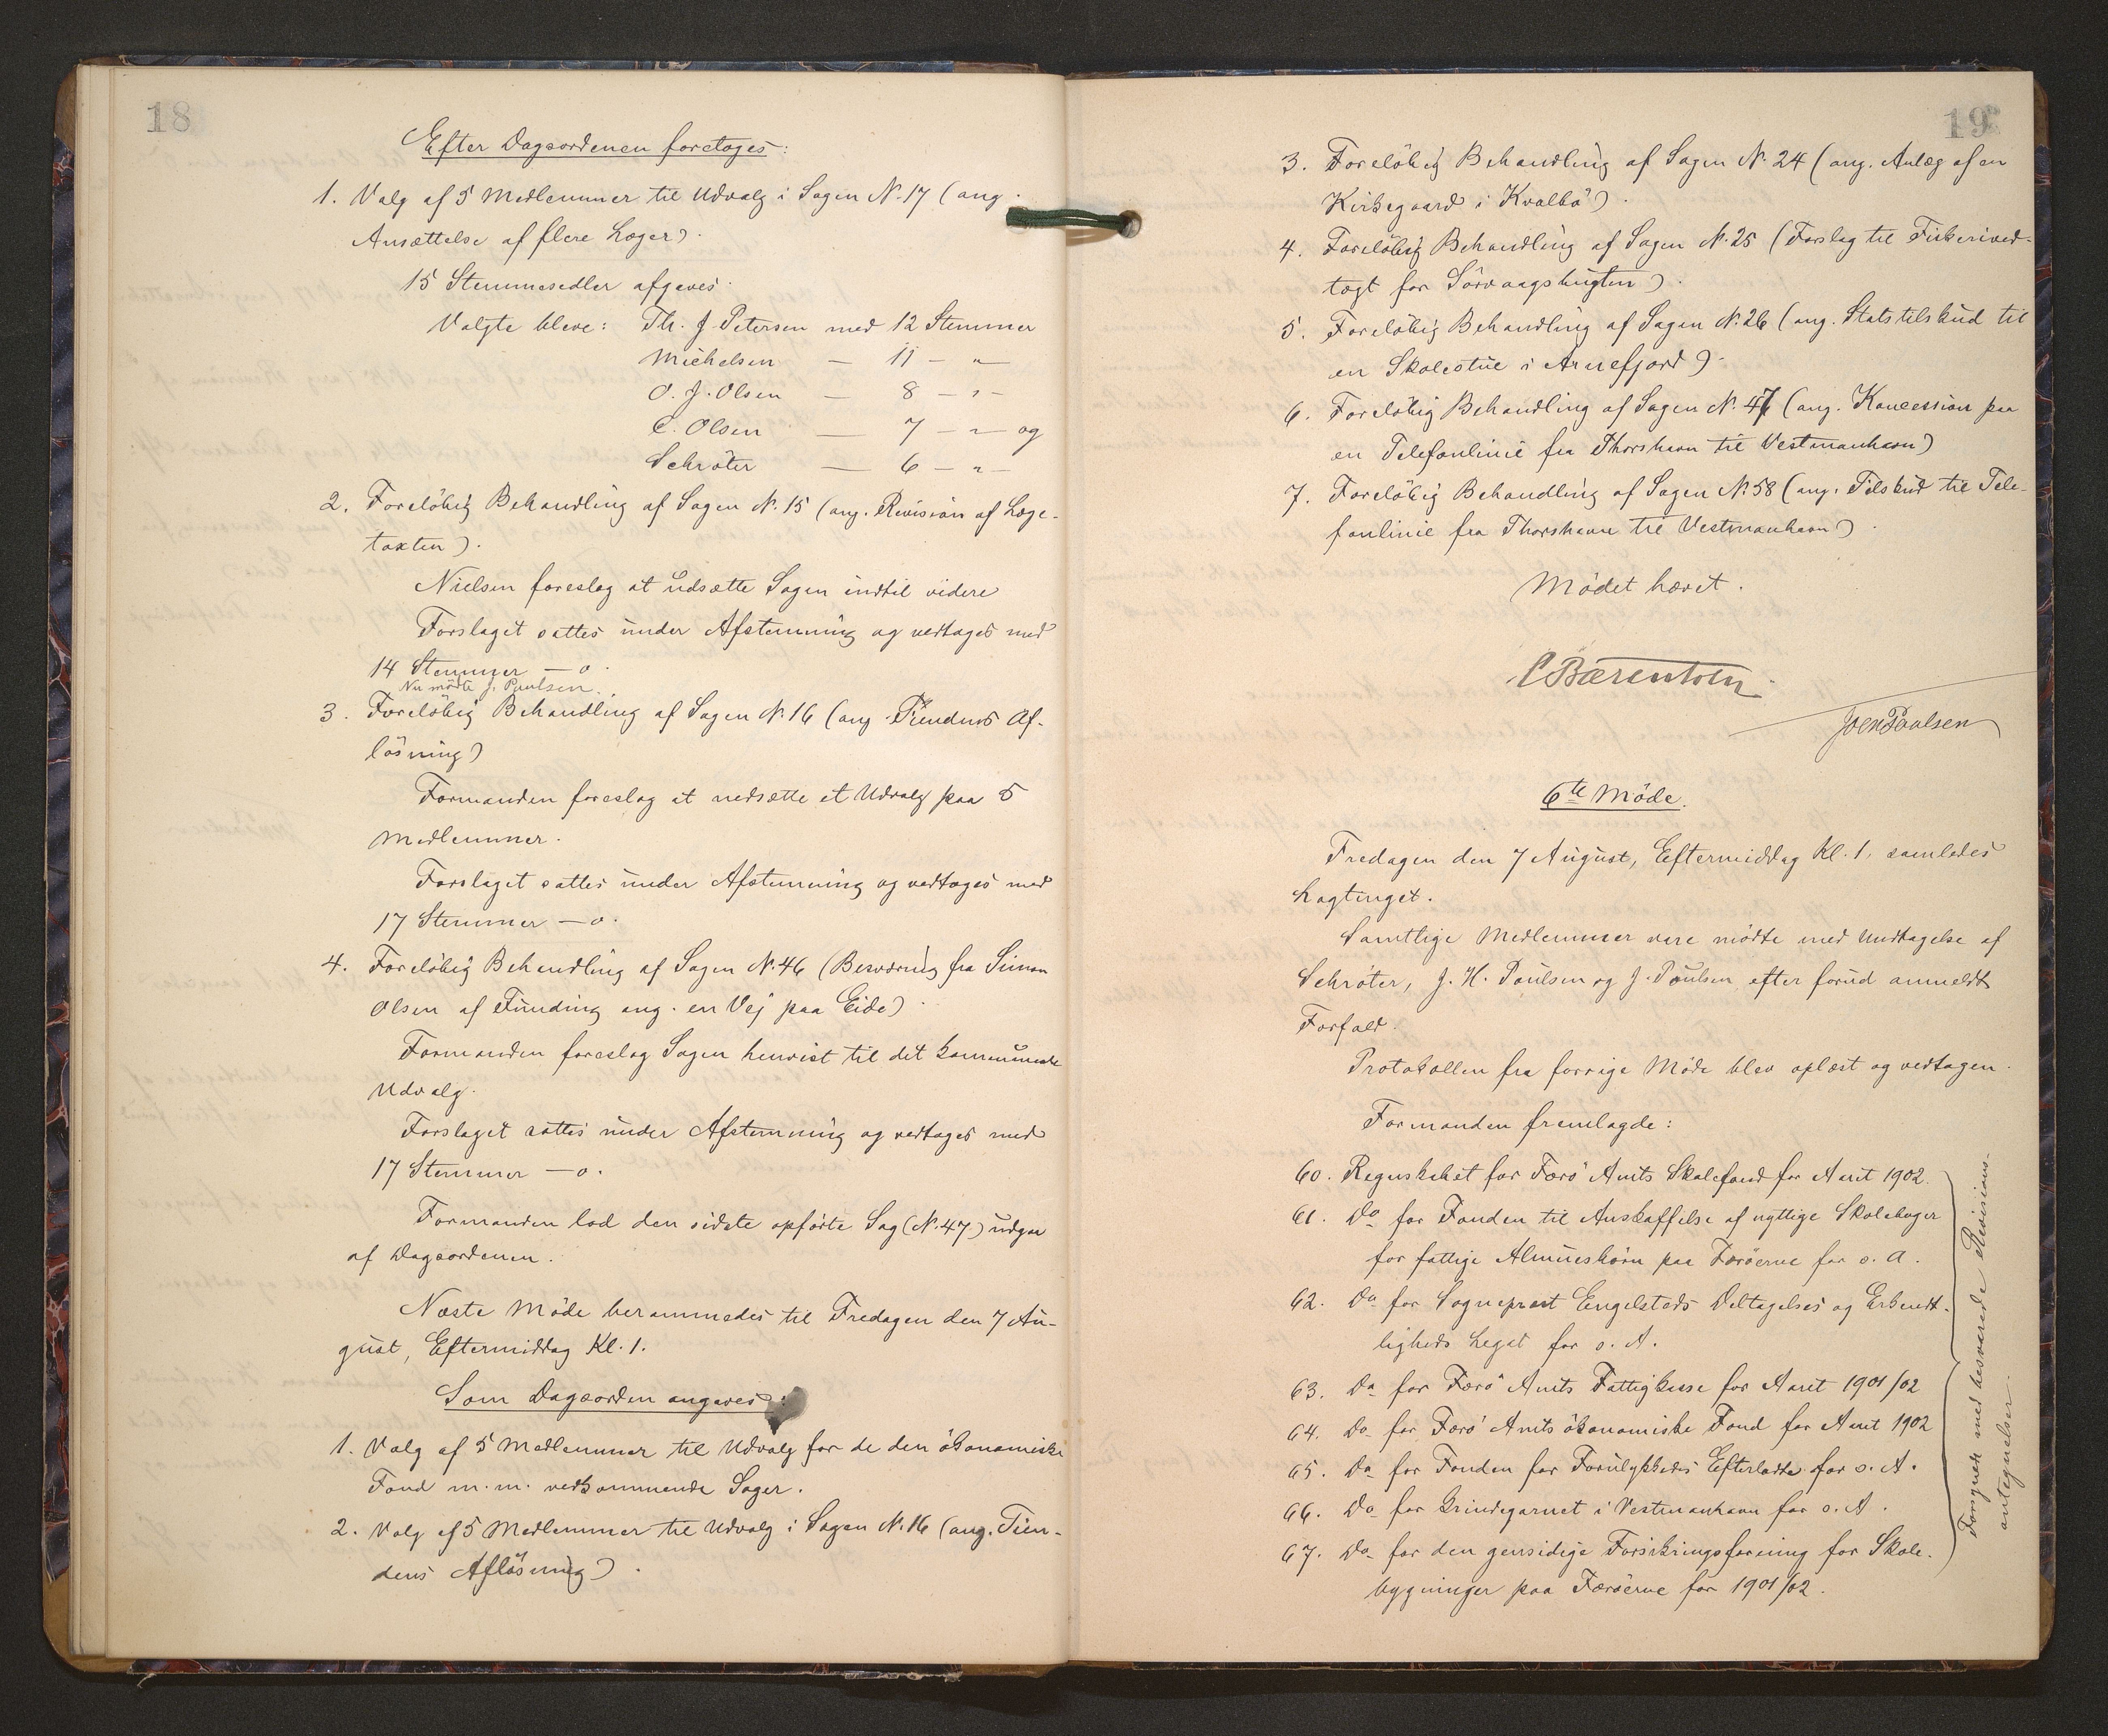 18
Efter Dagsordenen foretoges:
1. Valg af 5 Medlemmer til Udvalg i Sagen N. 17 (ang.
Ansættelse af flere Læger).
15 Stemmesedler afgaves.
Valgte bleve: Th. J. Petersen med 12 Stemmer
Michelsen — 11 — " —
O. J. Olsen — 8 — " —
C. Olsen — 7 — " — og
Schröter — 6 — " —
2. Forelöbig Behandling af Sagen N. 15 (ang. Revision af Læge-
taxten).
Nielsen foreslog at udsætte Sagen indtil videre
Forslaget sattes under Afstemning og vedtoges med
14 Stemmer — o.
Nu mödte J. Paulsen.
3. Forelöbig Behandling af Sagen N. 16 (ang. Tiendens Af-
lösning)
Formanden foreslog at nedsætte et Udvalg paa 5
Medlemmer.
Forslaget sattes under Afstemning og vedtoges med
17 Stemmer — o.
4. Forelöbig Behandling af Sagen N. 46 (Besværing fra Simon
Olsen af Funding ang. en Vej paa Eide)
Formanden foreslog Sagen henvist til det kommunale
Udvalg.
Forslaget sattes under Afstemning og vedtoges med
17 Stemmer — o.
Formanden lod den sidste opförte Sag (N. 47) udgaa
af Dagsordenen.
Næste Möde berammedes til Fredagen den 7 Au-
gust, Eftermiddag Kl. 1.
Som Dagsorden angaves:
1. Valg af 5 Medlemmer til Udvalg for de den ökonomiske
Fond m. m. vedkommende Sager.
2. Valg af 5 Medlemmer til Udvalg i Sagen N. 16 (ang. Tien-
dens Aflösning).
19
3. Forelöbig Behandling af Sagen N. 24 (ang. Anlæg af en
Kirkegaard i Kvalbö).
4. Forelöbig Behandling af Sagen N. 25 (Forslag til Fiskerived-
tægt for Sörvaagsbugten).
5. Forelöbig Behandling af Sagen N. 26 (ang. Statstilskud til
en Skolestue i Arnefjord).
6. Forelöbig Behandling af Sagen N. 47 (ang. Koncession paa
en Telefonlinie fra Thorshavn til Vestmanhavn)
7. Forelöbig Behandling af Sagen N. 58 (ang. Tilskud til Tele-
fonlinie fra Thorshavn til Vestmanhavn).
Mödet hævet.
C Bærentsen
Joen Poulsen
6te Möde.
Fredagen den 7 August, Eftermiddag Kl. 1, samledes
Lagtinget.
Samtlige Medlemmer vare mödte med Undtagelse af
Schröter, J. H. Poulsen og J. Poulsen efter forud anmeldt
Forfald.
Protokollen fra forrige Möde blev oplæst og vedtagen.
Formanden fremlagde:
60. Regnskabet for Færö Amts Skolefond for Aaret 1902.
61. Do for Fonden til Anskaffelse af nyttige Skolebøger
for fattige Almuesbörn paa Færöerne for s. A.
62. Do for Sognepræst Engelsteds Deltagelses og Erkendt-
ligheds Legat for s. A.
63. Do for Færö Amts Fattigkasse for Aaret 1901/02
64. Do for Færö Amts ökonomiske Fond for Aaret 1902
65. Do for Fonden for Forulykkedes Efterladte for s. A.
66. Do for Grindegarnet i Vestmanhavn for s. A.
67. Do for den gensidige Forsikringsforening for Skole-
bygninger paa Færöerne for 1901/02.
Forsynet med besvarede Revisions-
antegnelser.